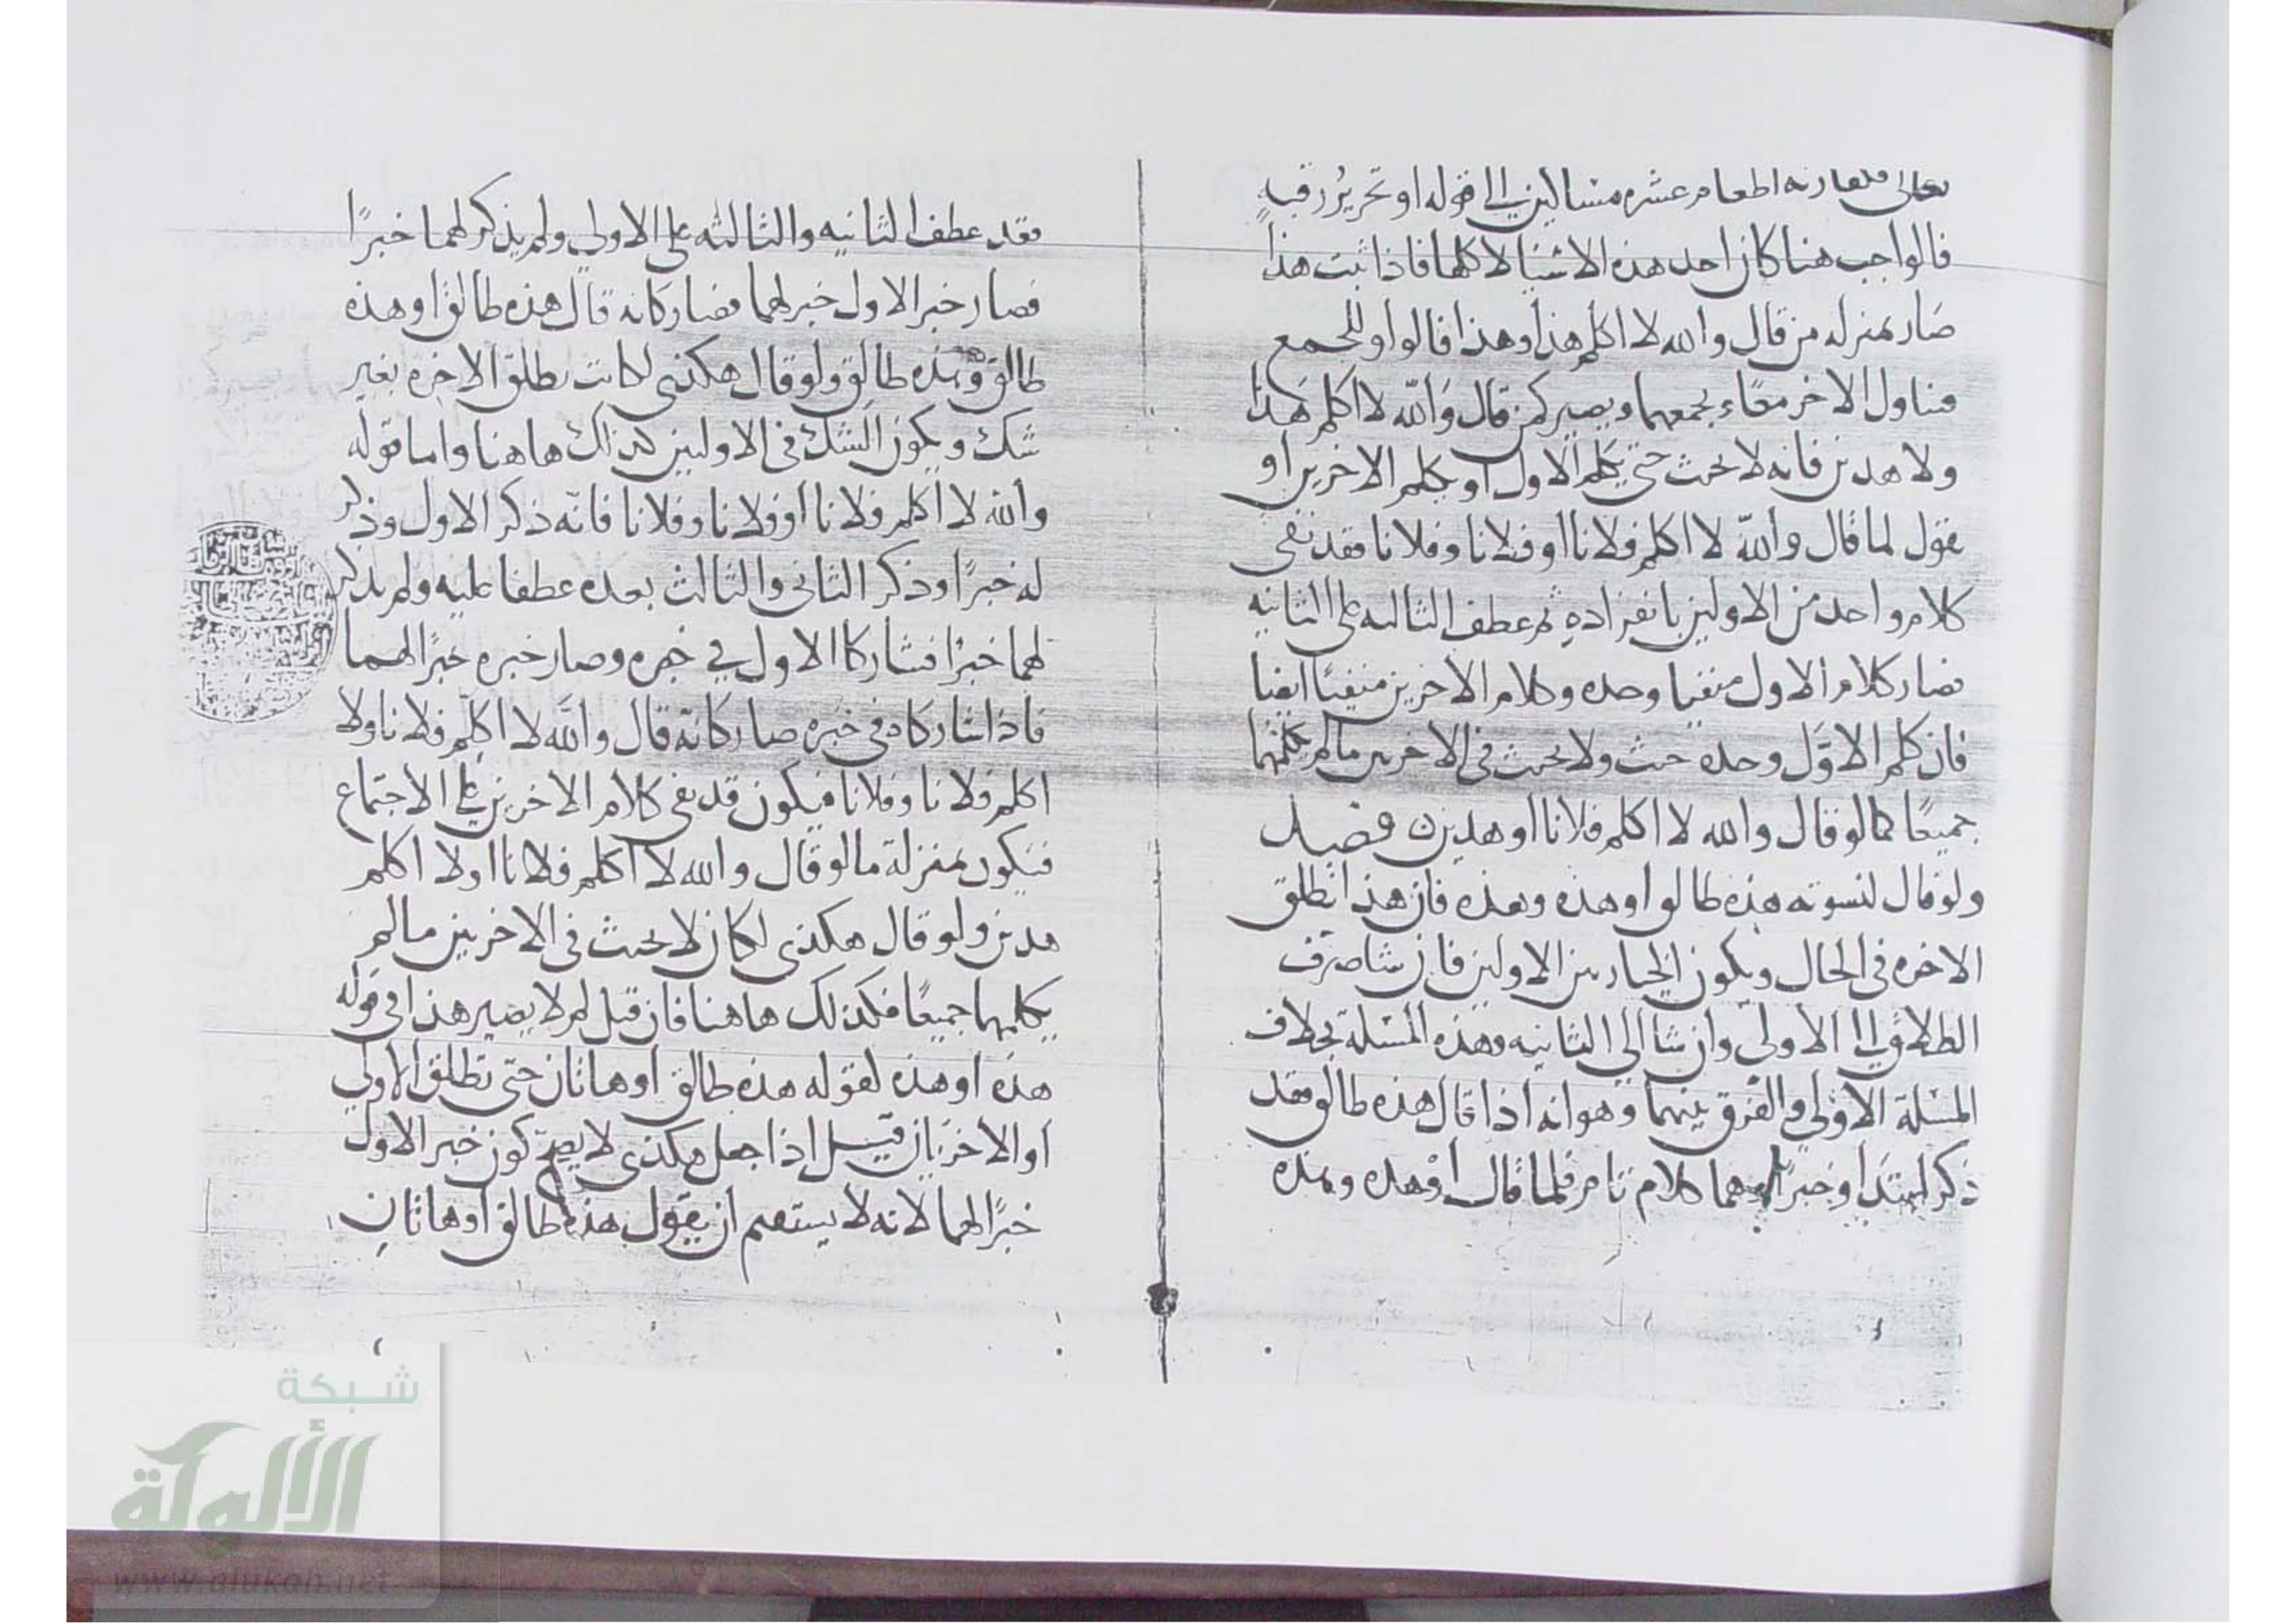 تعالى فكفارته اطعام عشره مساكين الى قوله او تحرير رقبةٍ
فالواجب هنا كان احد هذه الاشيا لا كلها فاذا ثبت هذا
صار بمنزله من قال والله لا اكلم هذا وهذا فالواو للجمع
فتناول الاخر معًا بجمعهما ويصير كمن قال والله لا اكلم هذا
ولا هذين فانه لا يحنث حتى يكلم الاول او يكلم الاخرين او
يقول لما قال والله لا اكلم فلانا او فلانا وفلانا فقد نفى
كلام واحد من الاولين بانفراده ثم عطف الثالثه على الثانيه
فصار كلام الاول منفيا وحده وكلام الاخرين منفيًا ايضا
فان كلم الاوّل وحده حنث ولا يحنث في الاخرين ما لم يكلمهما
جميعًا كما لو قال والله لا اكلم فلانا او هذين فصل
ولو قال لنسوته هذه طالق او هذه وهذه فان هذا تطلق
الاخره في الحال ويكون الخيار بين الاولين فان شا صرف
الطلاق الى الاولى وان شا الى الثانيه وهذه المسئلة بخلاف
المسئلة الاولى والفرق بينهما وهو انه اذا قال هذه طالق فقد
ذكر المبتدا وخبرًا وهما كلام تام فلما قال او هذه وهذه
فقد عطف الثانيه والثالثه على الاولى ولم يذكر لهما خبرًا
فصار خبر الاول خبر لهما فصار كانه قال هذه طالق او هذه
طالق وهذه طالق ولو قال هكذى لكانت تطلق الاخره بغير
شك ويكون الشك في الاولين كذلك هاهنا واما قوله
والله لا اكلم فلانا او فلانا وفلانا فانه ذكر الاول وذكر
له خبرًا وذكر الثاني والثالث بعده عطفا عليه ولم يذكر
لهما خبرًا فشاركا الاول في خبره وصار خبره خبرًا لهما
فاذا شاركاه في خبره صار كانه قال والله لا اكلم فلانا ولا
اكلم فلانا وفلانا فيكون قد نفى كلام الاخرين على الاجتماع
فيكون بمنزلة ما لو قال والله لا اكلم فلانا اولا اكلم
هذين ولو قال هكذى لكان لا يحنث في الاخرين ما لم
يكلمهما جميعًا فكذلك هاهنا فان قيل لم لا يصير هذا في قوله
هذه او هذه لقوله هذه طالق او هاتان حتى تطلق الاولى
او الاخرتان قيل اذا جعل هكذى لا يصح كون خبر الاول
خبرًا لهما لانه لا يستقيم ان يقول هذه طالق او هاتان
شبكة
الألوكة
www.alukah.net